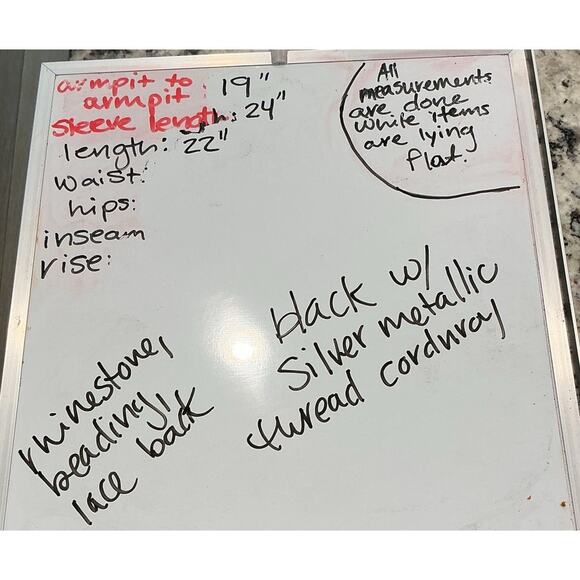 armpit to
armpit: 19"
sleeve length: 24"
length: 22"
waist:
hips:
inseam
rise:
All
measurements
are done
while items
are lying
flat.
black w/
silver metallic
thread corduroy
rhinestone,
beading,
lace back